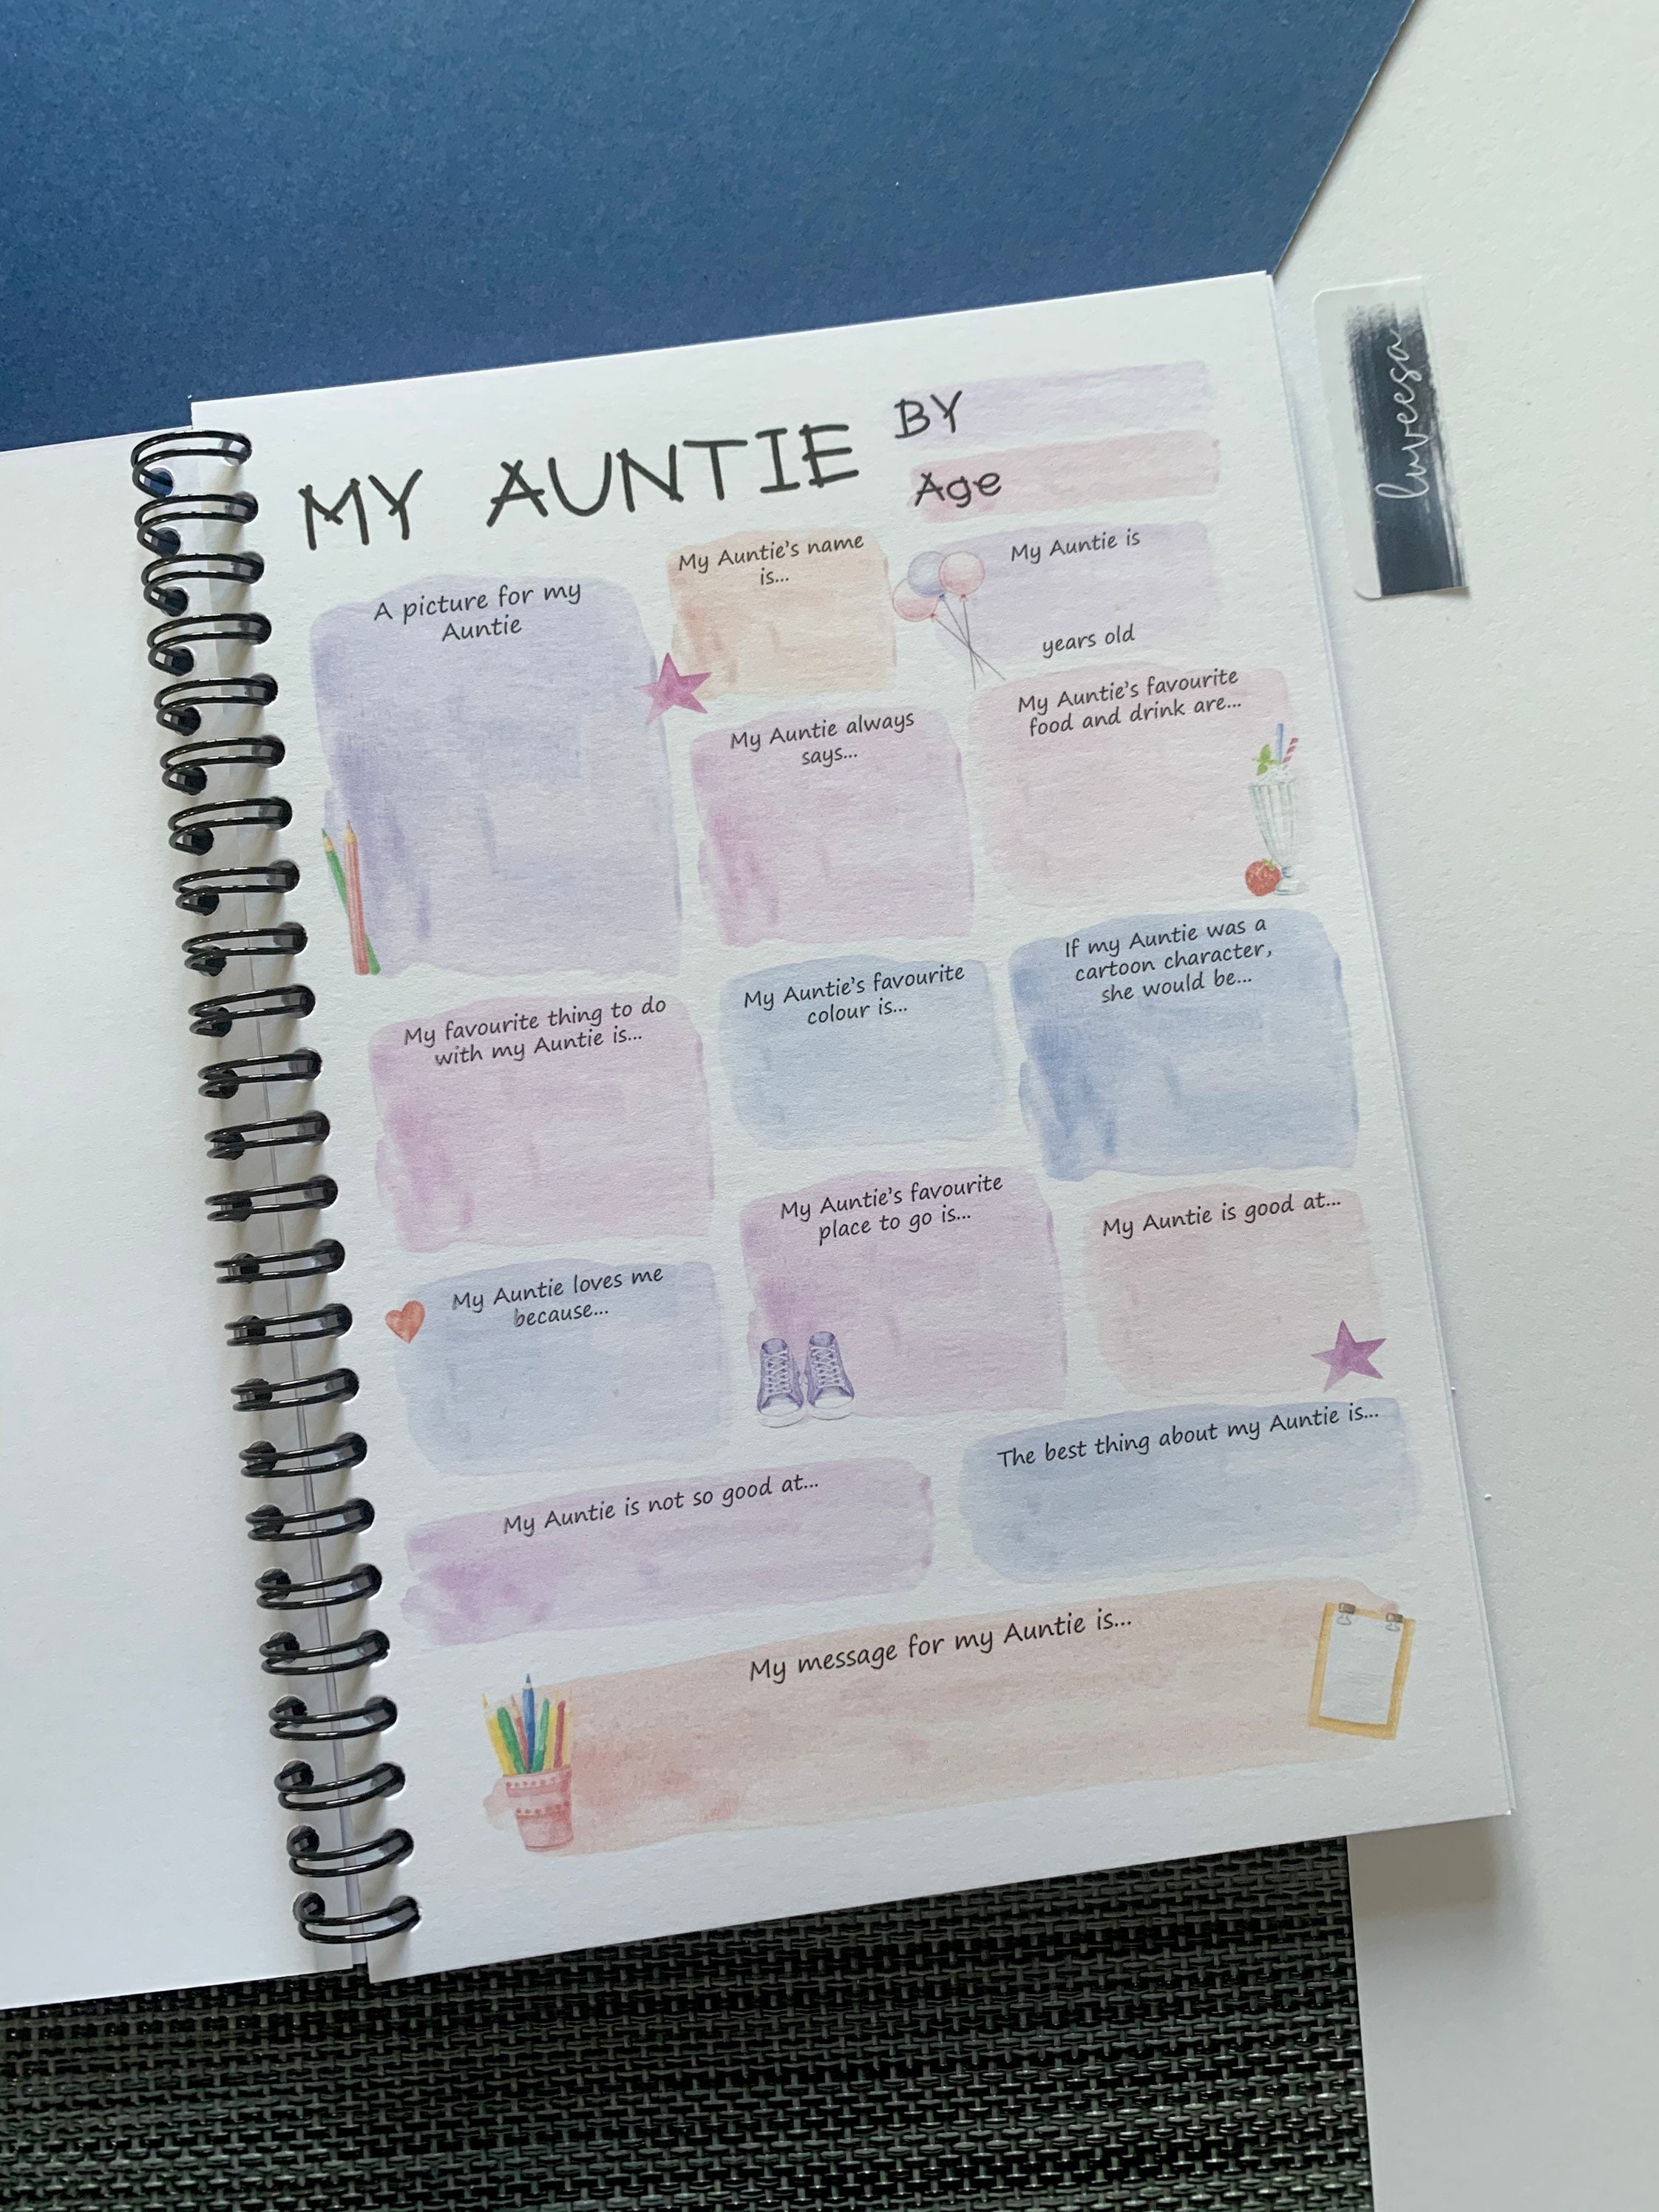 MY AUNTIE BY
Age
A picture for my
Auntie
My Auntie's name
is...
My Auntie is
years old
My Auntie always
says...
My Auntie's favourite
food and drink are...
My favourite thing to do
with my Auntie is...
My Auntie's favourite
colour is...
If my Auntie was a
cartoon character,
she would be...
My Auntie loves me
because...
My Auntie's favourite
place to go is...
My Auntie is good at...
My Auntie is not so good at...
The best thing about my Auntie is...
My message for my Auntie is...
luveesa